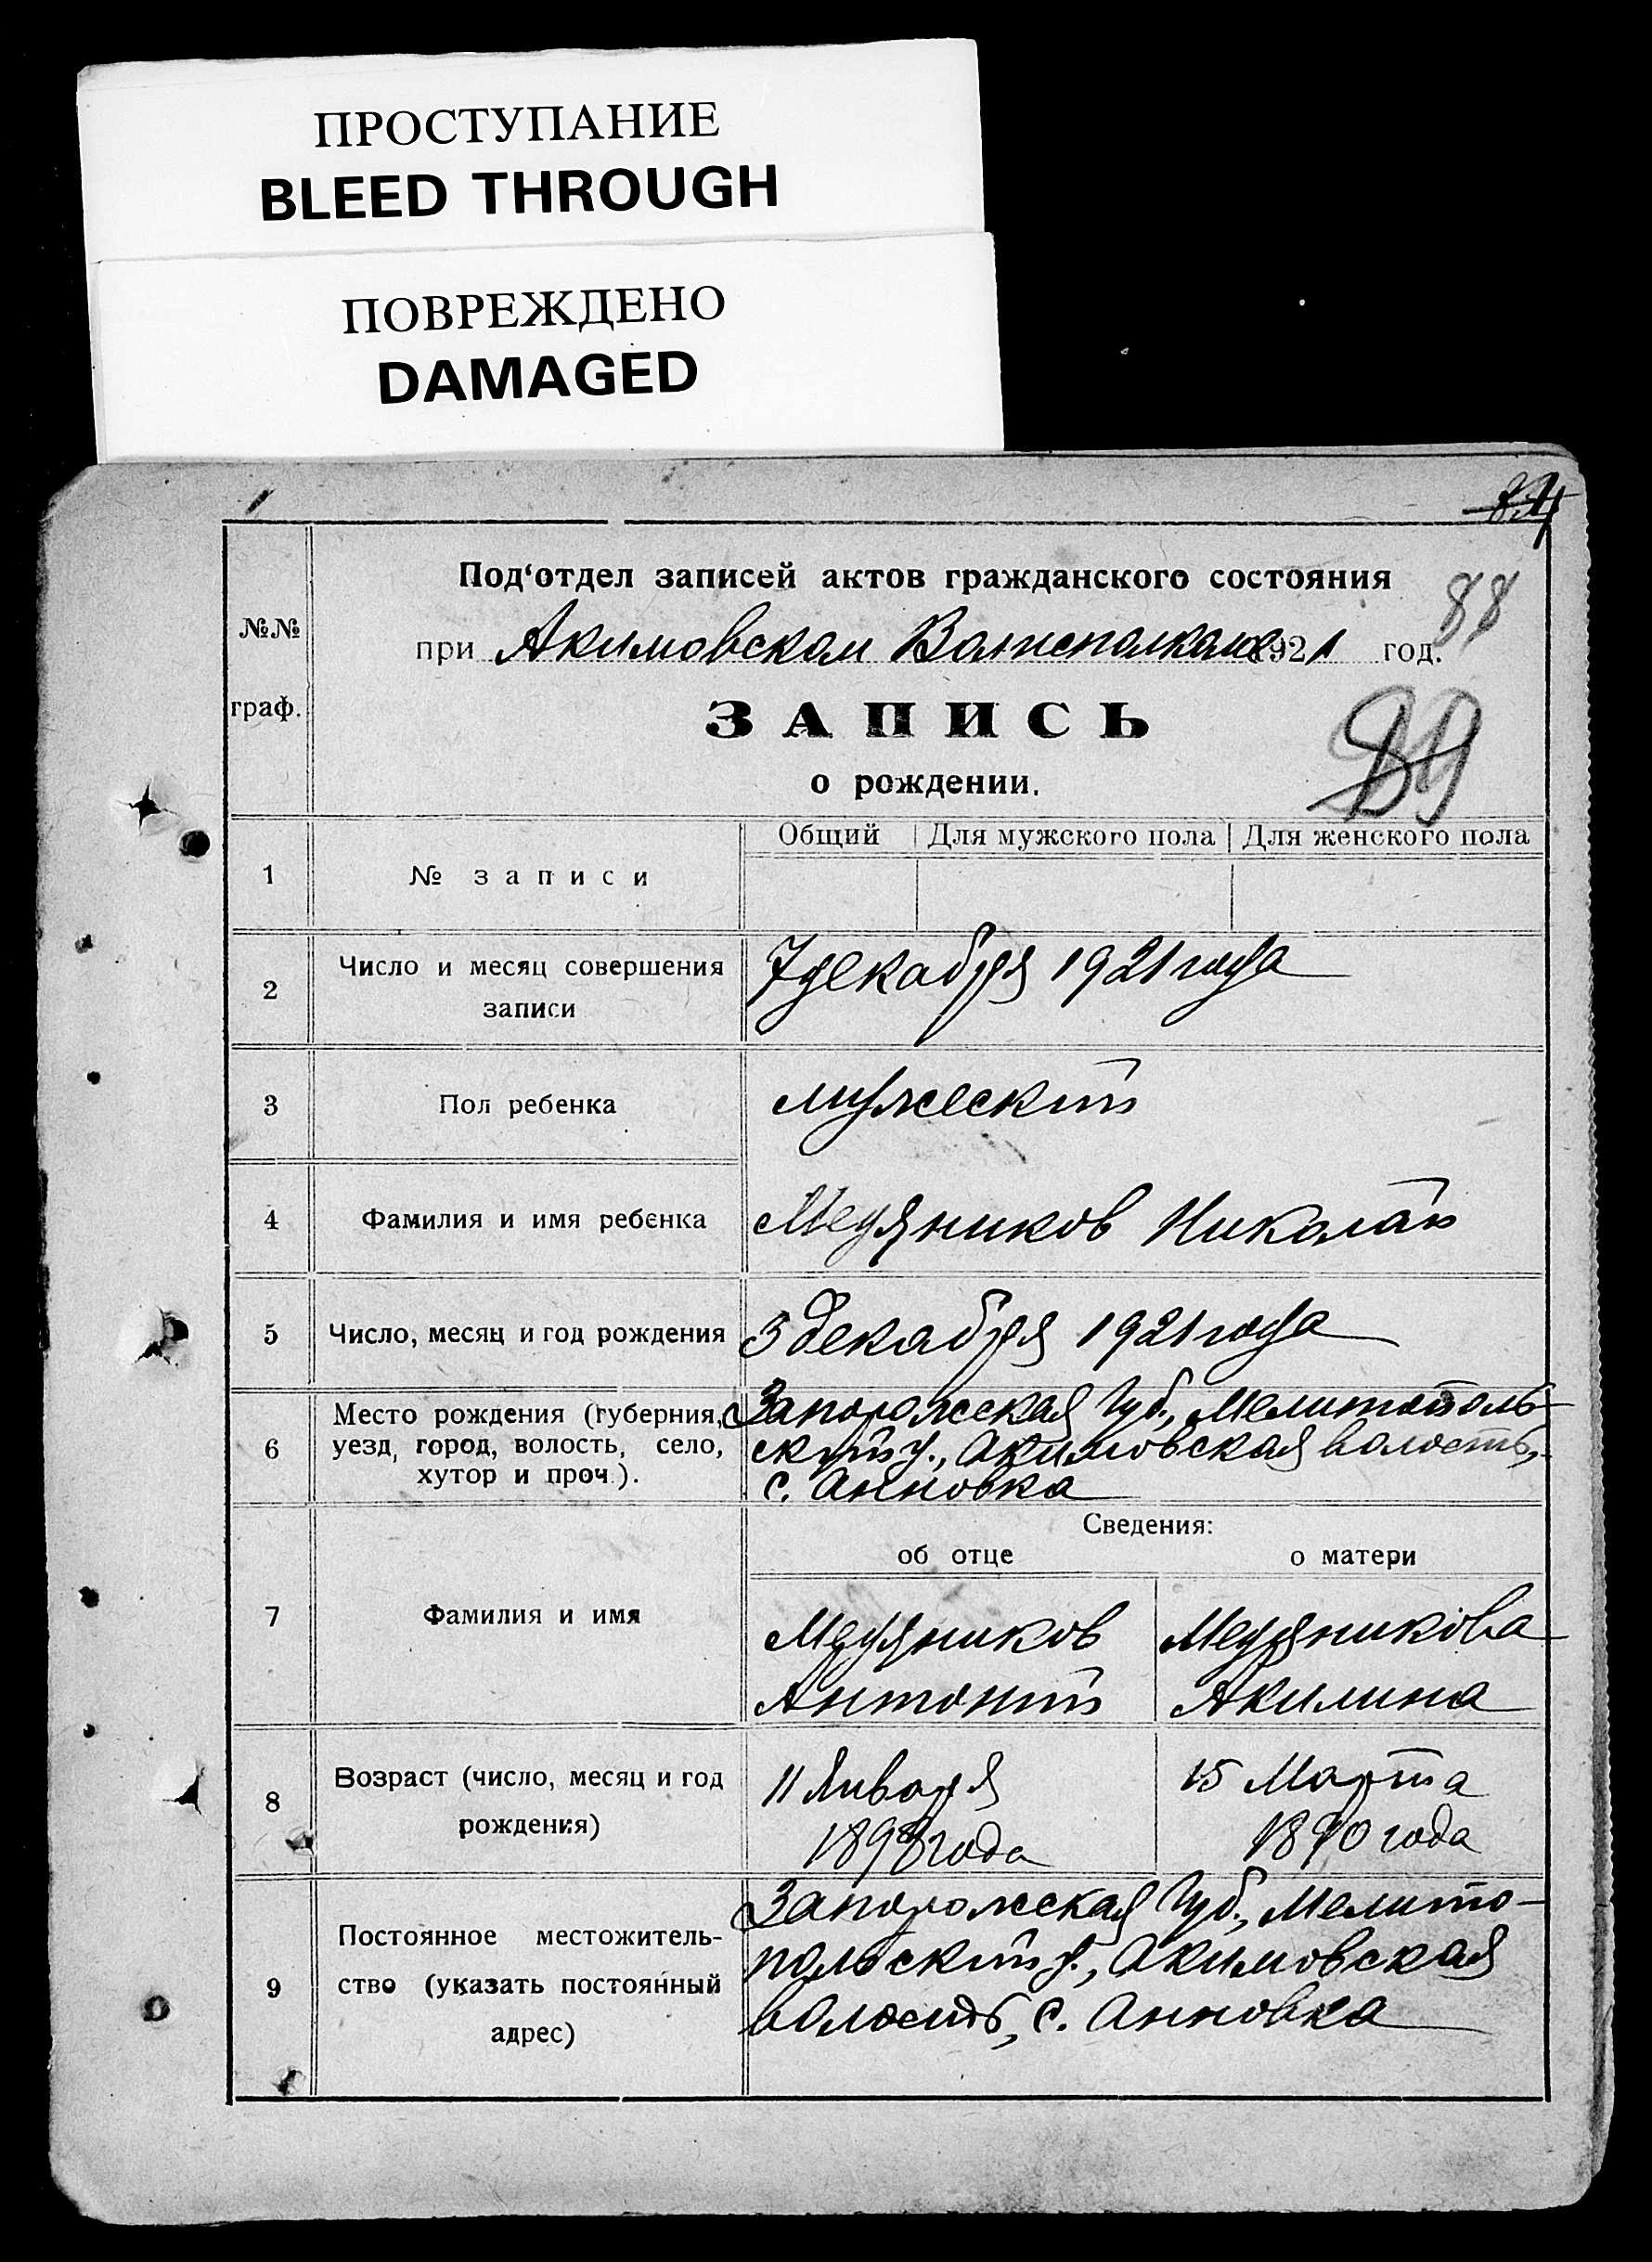 ПРОСТУПАНИЕ
BLEED THROUGH
ПОВРЕЖДЕНО
DAMAGED
№№ граф.
Под‘отдел записей актов гражданского состояния
88
при Акимовском 1921 год.
ЗАПИСЬ
89
о рождении.
Общий Для мужского пола Для женского пола
1 № записи
2 Число и месяц совершения
записи
7 декабря 1921 года
3 Пол ребенка мужеский
4 Фамилия и имя ребенка Медяников Николай
5 Число, месяц и год рождения 3 декабря 1921 года
6 Место рождения (губерния,
уезд, город, волость, село,
хутор и проч.).
Запорожская Губ., Мелитополь-
ский у., Акимовская волость,
с. Анновка
Сведения:
об отце о матери
7 Фамилия и имя
Медяников Медяникова
Антоний Акилина
8 Возраст (число, месяц и год
рождения)
11 Января 15 Марта
1898 года 1890 года
9 Постоянное местожитель-
ство (указать постоянный
адрес)
Запорожская Губ., Мелито-
польский у., Акимовская
волость, с. Анновка